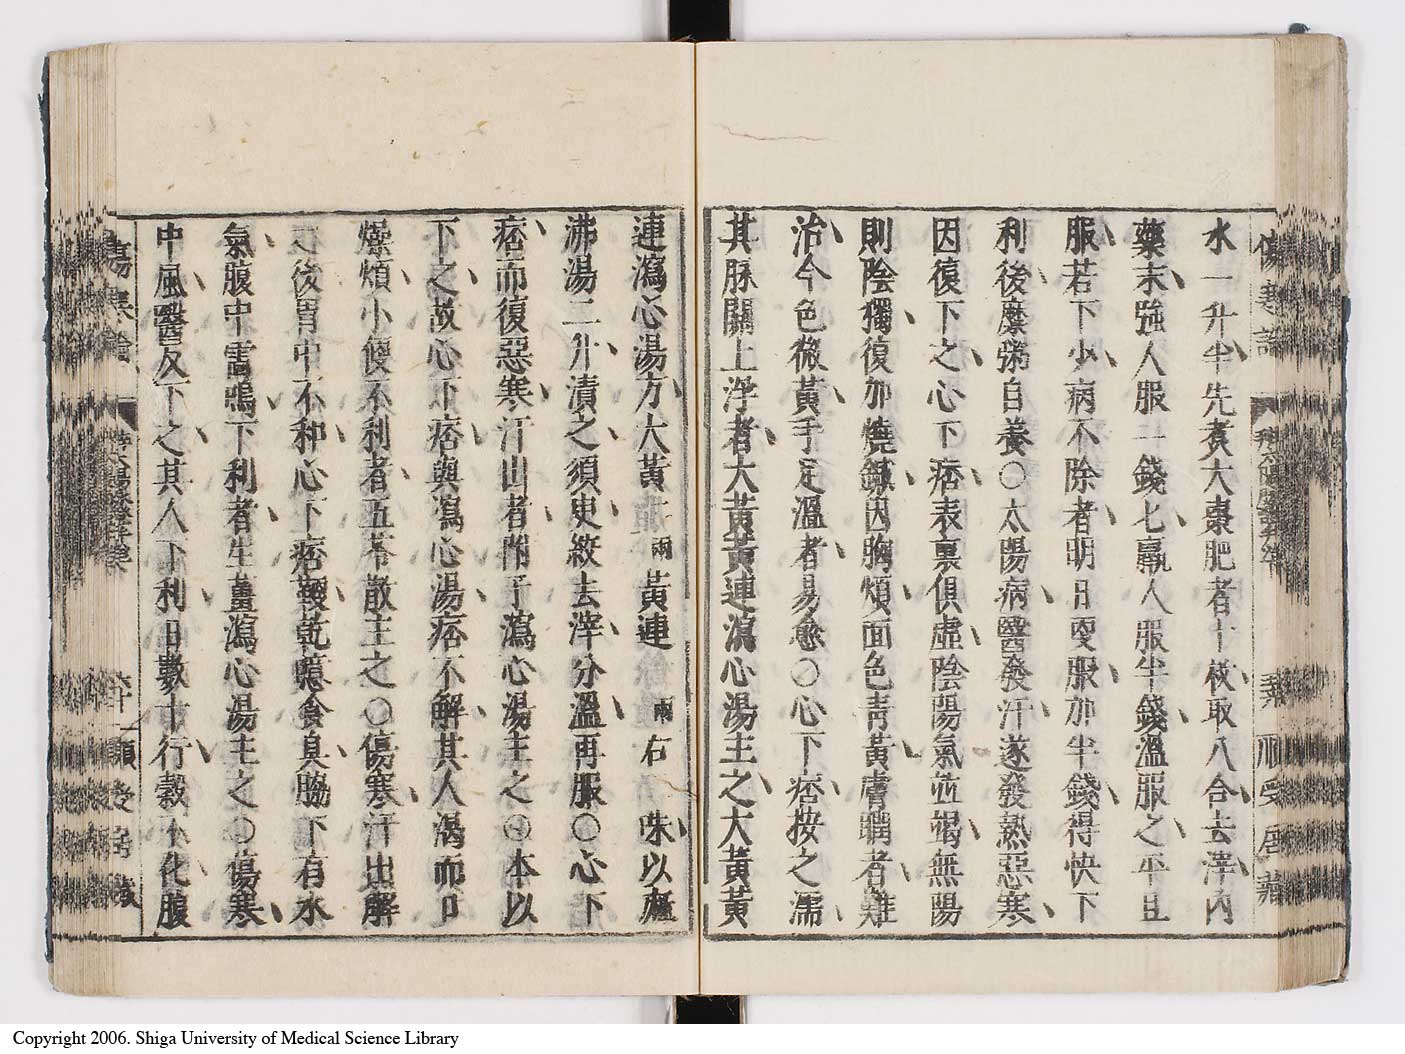 水一升半先煮大棗肥者十枚取八合去滓內
藥末強人服一錢匕羸人服半錢溫服之平旦
服若下少病不除者明日更服加半錢得快下
利後糜粥自養○太陽病醫發汗遂發熱惡寒
因復下之心下痞表裏俱虛陰陽氣並竭無陽
則陰獨復加燒鍼因胸煩面色青黃膚瞤者難
治今色微黃手足溫者易愈○心下痞按之濡
其脉關上浮者大黃黃連瀉心湯主之大黃黃
連瀉心湯方大黃二兩黃連一兩右二味以麻
沸湯二升漬之須臾絞去滓分溫再服○心下
痞而復惡寒汗出者附子瀉心湯主之○本以
下之故心下痞與瀉心湯痞不解其人渴而口
燥煩小便不利者五苓散主之○傷寒汗出解
之後胃中不和心下痞鞕乾噫食臭脇下有水
氣腹中雷鳴下利者生薑瀉心湯主之○傷寒
中風醫反下之其人下利日數十行穀不化腹
傷寒論
六十一
Copyright 2006. Shiga University of Medical Science Library